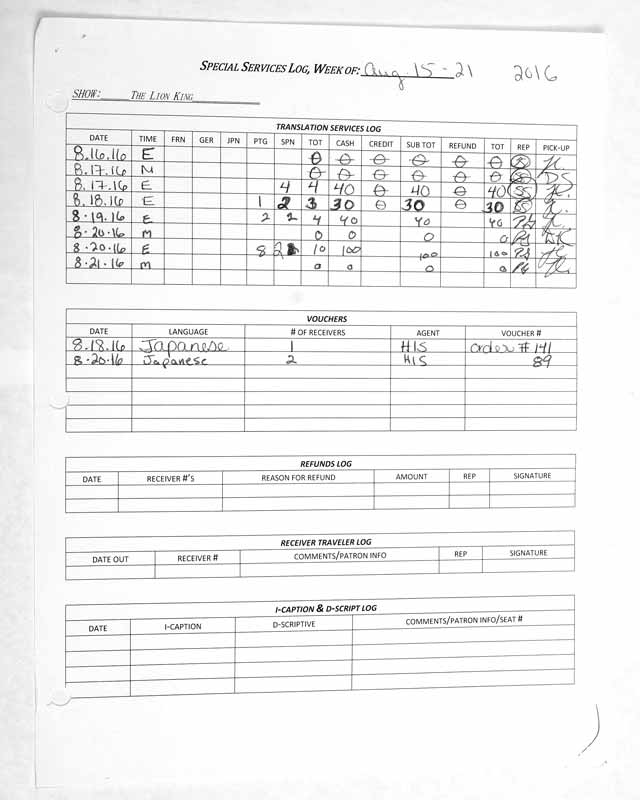 SPECIAL SERVICES LOG, WEEK OF: Aug. 15-21 2016
SHOW: THE LION KING
TRANSLATION SERVICES LOG
DATE TIME FRN GER JPN PTG SPN TOT CASH CREDIT SUB TOT REFUND TOT REP PICK-UP
8.16.16 E 0 0 0 0 0 0 SS
8.17.16 M 0 0 0 0 0 0 SS DS
8.17.16 E 4 4 40 0 40 0 40 SS
8.18.16 E 1 2 3 30 0 30 0 30 SS
8.19.16 E 2 2 4 40 40 40
8.20.16 M 0 0 0 0
8.20.16 E 8 2 10 100 100 100
8.21.16 M 0 0 0 0
VOUCHERS
DATE LANGUAGE # OF RECEIVERS AGENT VOUCHER #
8.18.16 Japanese 1 HIS order # 141
8.20.16 Japanese 2 HIS 89
REFUNDS LOG
DATE RECEIVER #'S REASON FOR REFUND AMOUNT REP SIGNATURE
RECEIVER TRAVELER LOG
DATE OUT RECEIVER # COMMENTS/PATRON INFO REP SIGNATURE
I-CAPTION & D-SCRIPT LOG
DATE I-CAPTION D-SCRIPTIVE COMMENTS/PATRON INFO/SEAT #